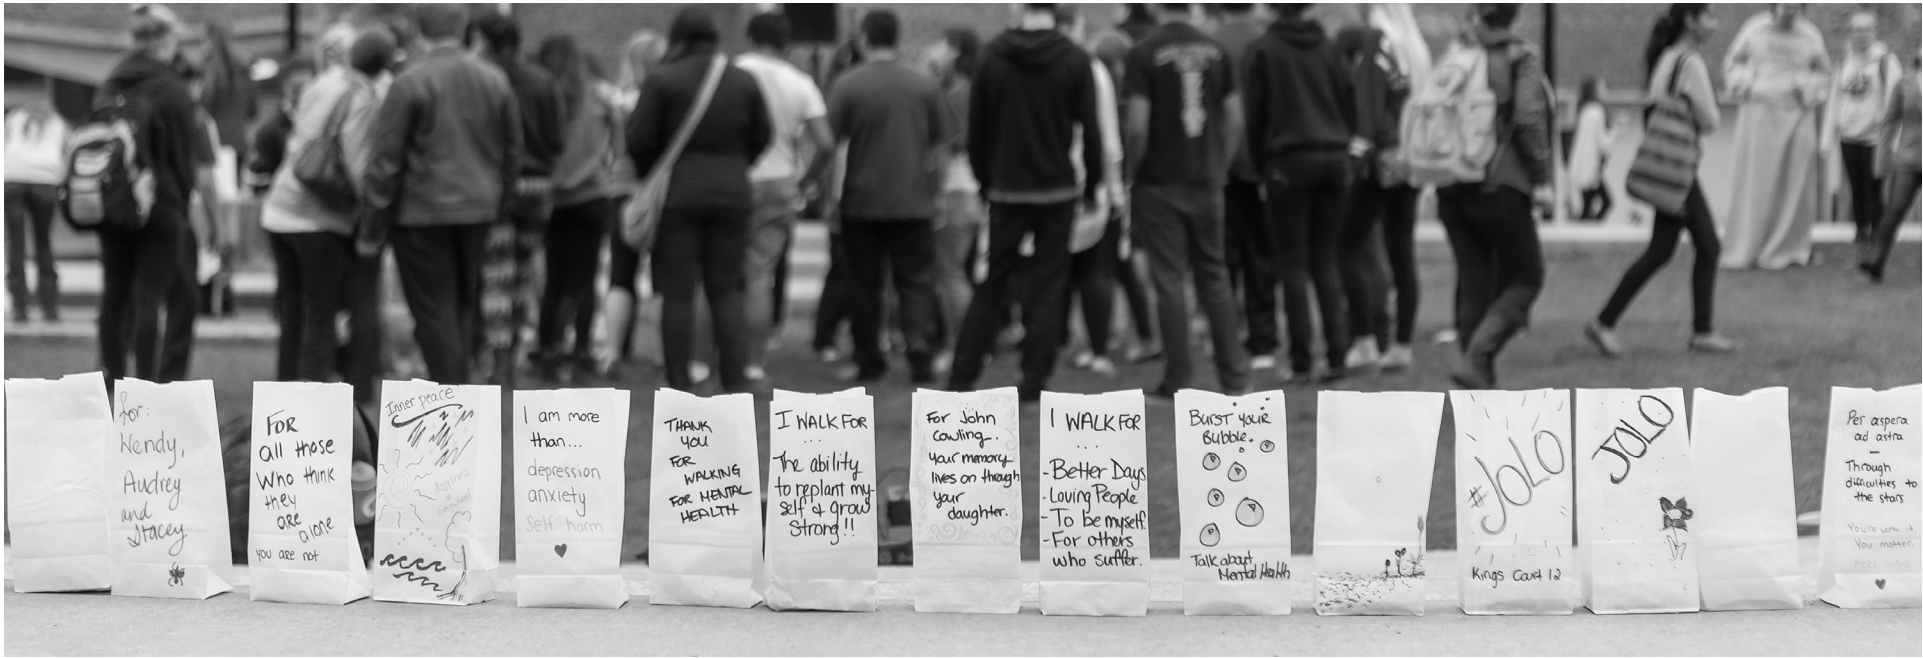 for:
Wendy,
Audrey
and
Stacey
FOR
all those
Who think
they
are
alone
you are not
Inner peace
I am more
than...
depression
anxiety
Self harm
THANK
YOU
FOR
WALKING
FOR MENTAL
HEALTH
I WALK FOR
...
The ability
to replant my-
self & grow
Strong!!
For John
Cowling.
Your memory
lives on through
your
daughter.
I WALK FOR
...
-Better Days
-Loving People
-To be myself.
-For others
who suffer.
BURST YOUR
Bubble.
Talk about
Mental Health
#JOLO
Kings Court 12
JOLO
Per aspera
ad astra
—
Through
difficulties to
the stars
You're worth it.
You matter.
Keep going.